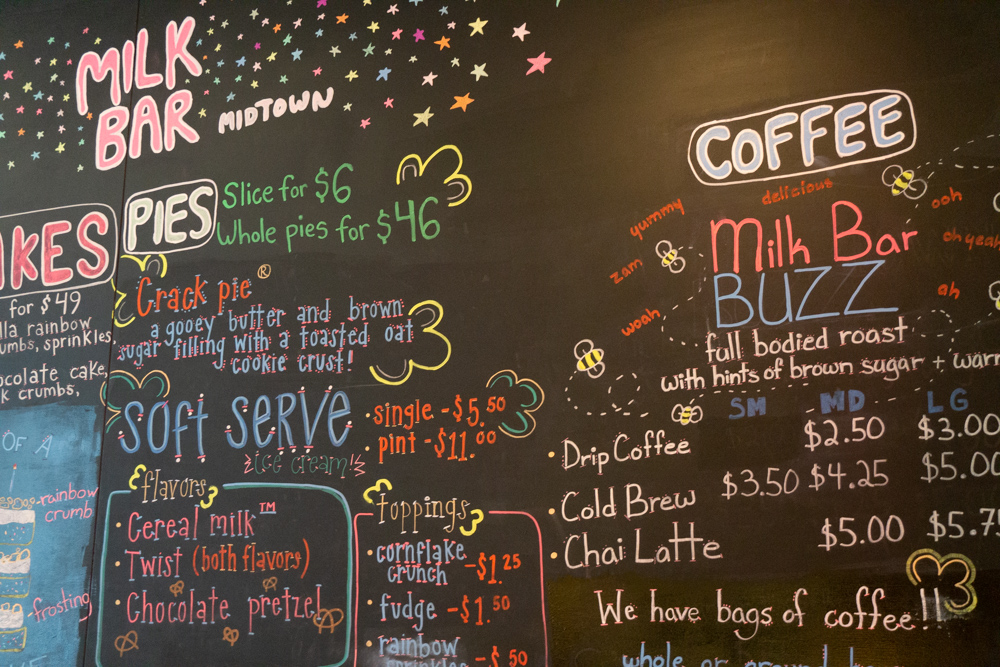 MILK
BAR
MIDTOWN
for $49
rainbow
sprinkles
cake,
crumbs,
OF A
rainbow
crumb
frosting
PIES
Slice for $6
Whole pies for $46
Crack pie®
a gooey butter and brown
sugar filling with a toasted oat
cookie crust!
SOFT SERVE
ice cream!
single - $5.50
pint - $11.00
flavors
• Cereal milk™
• Twist (both flavors)
• Chocolate pretzel
toppings
• cornflake
crunch - $1.25
• fudge - $1.50
• rainbow
sprinkles - $.50
COFFEE
yummy
delicious
ooh
zam
oh yeah
woah
ah
Milk Bar
BUZZ
full bodied roast
with hints of brown sugar +
SM MD LG
• Drip Coffee $2.50 $3.00
• Cold Brew $3.50 $4.25 $5.00
• Chai Latte $5.00
We have bags of coffee!!
whole or